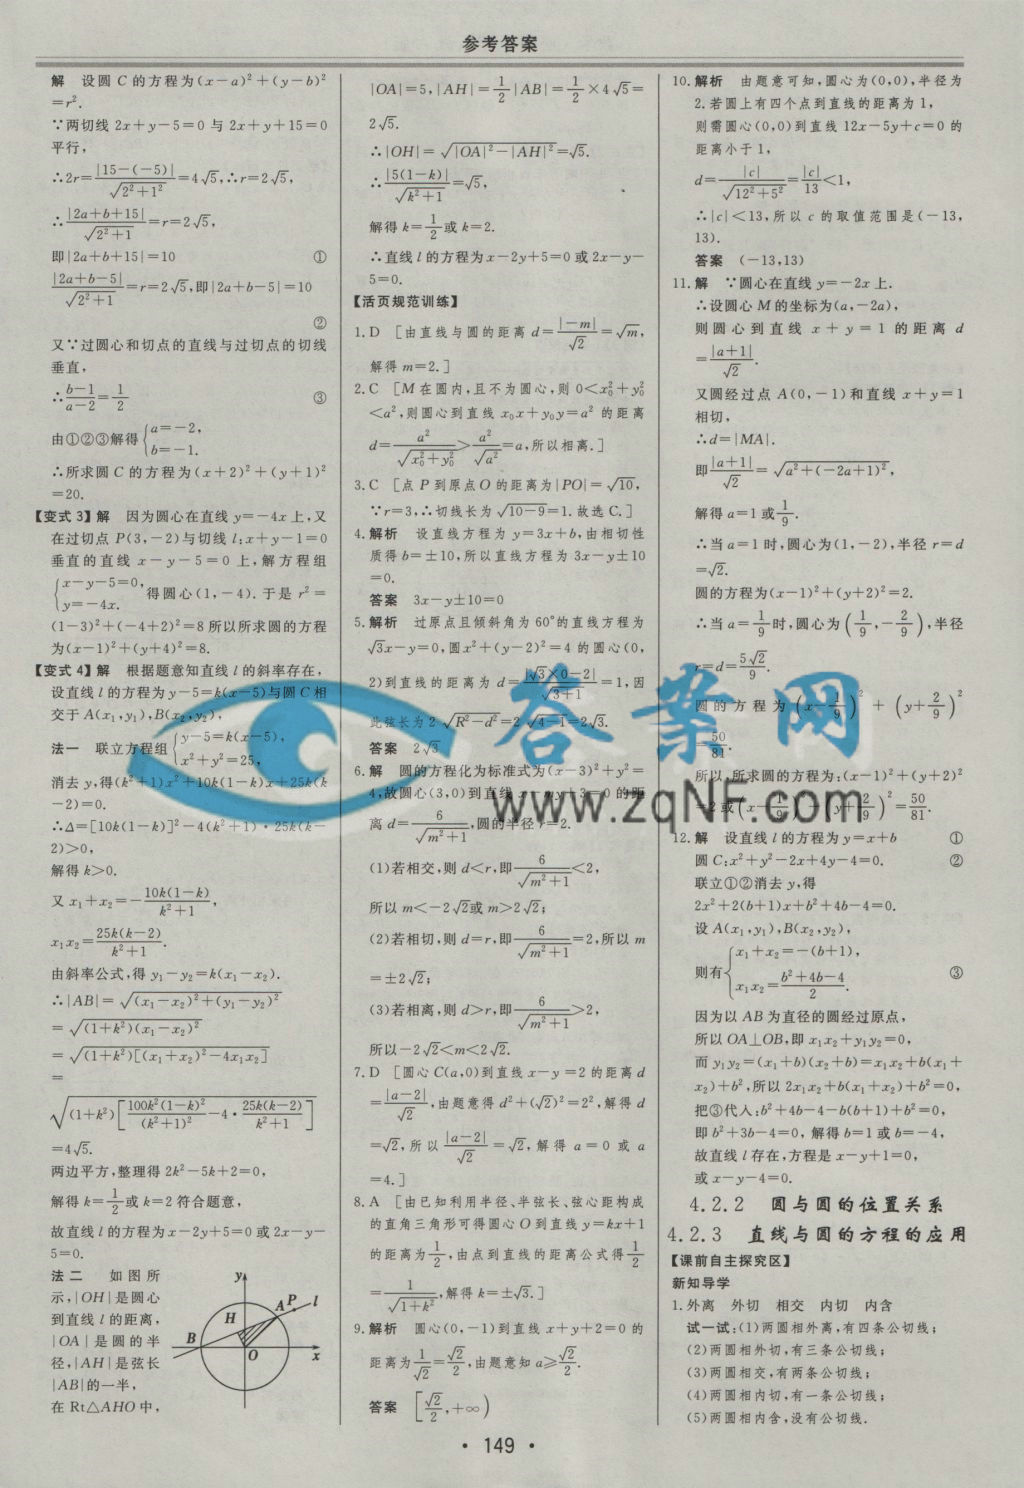 参考答案
解 设圆 C 的方程为(x-a)²+(y-b)²
=r².
∵两切线 2x+y-5=0 与 2x+y+15=0
平行,
∴2r=|15-(-5)|/√(2²+1²)=4√5,∴r=2√5,
∴|2a+b+15|/√(2²+1)=r=2√5,
即|2a+b+15|=10 ①
|2a+b-5|/√(2²+1)=r=2√5,即|2a+b-5|=10
②
又∵过圆心和切点的直线与过切点的切线
垂直,
∴(b-1)/(a-2)=1/2 ③
由①②③解得{a=-2, b=-1.
∴所求圆 C 的方程为(x+2)²+(y+1)²
=20.
【变式 3】解 因为圆心在直线 y=-4x 上,又
在过切点 P(3,-2)与切线 l:x+y-1=0
垂直的直线 x-y-5=0 上,解方程组
{x-y-5=0, y=-4x. 得圆心(1,-4).于是 r²=
(1-3)²+(-4+2)²=8 所以所求圆的方程
为(x-1)²+(y+4)²=8.
【变式 4】解 根据题意知直线 l 的斜率存在,
设直线 l 的方程为 y-5=k(x-5)与圆 C 相
交于 A(x₁,y₁),B(x₂,y₂),
法一 联立方程组{y-5=k(x-5), x²+y²=25,
消去 y,得(k²+1)x²+10k(1-k)x+25k(k
-2)=0.
∴Δ=[10k(1-k)]²-4(k²+1)·25k(k-
2)>0,
解得 k>0.
又 x₁+x₂=-10k(1-k)/(k²+1),
x₁x₂=25k(k-2)/(k²+1).
由斜率公式,得 y₁-y₂=k(x₁-x₂).
∴|AB|=√((x₁-x₂)²+(y₁-y₂)²)
=√((1+k²)(x₁-x₂)²)
=√((1+k²)[(x₁+x₂)²-4x₁x₂])
=
√((1+k²)[100k²(1-k)²/(k²+1)²-4·25k(k-2)/(k²+1)])
=4√5.
两边平方,整理得 2k²-5k+2=0,
解得 k=1/2或 k=2 符合题意,
故直线 l 的方程为 x-2y+5=0 或 2x-y-
5=0.
法二 如图所
示,|OH|是圆心
到直线 l 的距离,
|OA|是圆的半
径,|AH|是弦长
|AB|的一半,
在 Rt△AHO 中,
y
A
P
l
H
B
O
x
|OA|=5,|AH|=1/2|AB|=1/2×4√5=
2√5.
∴|OH|=√(|OA|²-|AH|²)=√5.
∴|5(1-k)|/√(k²+1)=√5,
解得 k=1/2或 k=2.
∴直线 l 的方程为 x-2y+5=0 或 2x-y-
5=0.
【活页规范训练】
1.D [由直线与圆的距离 d=|-m|/√2=√m,
解得 m=2.]
2.C [M 在圆内,且不为圆心,则 0<x₀²+y₀²
<a²,则圆心到直线 x₀x+y₀y=a² 的距离
d=a²/√(x₀²+y₀²)>a²/√a²=a,所以相离.]
3.C [点 P 到原点 O 的距离为|PO|=√10,
∵r=3,∴切线长为√(10-9)=1.故选 C.]
4.解析 设直线方程为 y=3x+b,由相切性
质得 b=±10,所以直线方程为 3x-y±10
=0.
答案 3x-y±10=0
5.解析 过原点且倾斜角为 60°的直线方程为
√3x-y=0,圆 x²+(y-2)²=4 的圆心(0,
2)到直线的距离为 d=|√3×0-2|/√(3+1)=1,因
此弦长为 2√(R²-d²)=2√(4-1)=2√3.
答案 2√3
6.解 圆的方程化为标准式为(x-3)²+y²=
4,故圆心(3,0)到直线 x-my+3=0 的距
离 d=6/√(m²+1),圆的半径 r=2.
(1)若相交,则 d<r,即6/√(m²+1)<2,
所以 m<-2√2或 m>2√2;
(2)若相切,则 d=r,即6/√(m²+1)=2,所以 m
=±2√2;
(3)若相离,则 d>r,即6/√(m²+1)>2,
所以-2√2<m<2√2.
7.D [圆心 C(a,0)到直线 x-y=2 的距离 d
=|a-2|/√2,由题意得 d²+(√2)²=2²,解得 d
=√2,所以|a-2|/√2=√2,解得 a=0 或 a
=4.]
8.A [由已知利用半径、半弦长、弦心距构成
的直角三角形可得圆心 O 到直线 y=kx+1
的距离为1/2,由点到直线的距离公式得1/2
=1/√(1+k²),解得 k=±√3.]
9.解析 圆心(0,-1)到直线 x+y+2=0 的
距离为1/√2=√2/2,由题意知 a≥√2/2.
答案 [√2/2,+∞)
10.解析 由题意可知,圆心为(0,0),半径为
2.若圆上有四个点到直线的距离为 1,
则需圆心(0,0)到直线 12x-5y+c=0 的
距离小于 1,
d=|c|/√(12²+5²)=|c|/13<1,
∴|c|<13,所以 c 的取值范围是(-13,
13).
答案 (-13,13)
11.解 ∵圆心在直线 y=-2x 上.
∴设圆心 M 的坐标为(a,-2a),
则圆心到直线 x+y=1 的距离 d
=|a+1|/√2.
又圆经过点 A(0,-1)和直线 x+y=1
相切,
∴d=|MA|.
即|a+1|/√2=√(a²+(-2a+1)²),
解得 a=1 或1/9.
∴当 a=1 时,圆心为(1,-2),半径 r=d
=√2.
圆的方程为(x-1)²+(y+2)²=2.
∴当 a=1/9时,圆心为(1/9,-2/9),半径
r=d=5√2/9.
圆的方程为(x-1/9)²+(y+2/9)²
=50/81.
所以,所求圆的方程为:(x-1)²+(y+2)²
=2 或(x-1/9)²+(y+2/9)²=50/81.
12.解 设直线 l 的方程为 y=x+b ①
圆 C:x²+y²-2x+4y-4=0. ②
联立①②消去 y,得
2x²+2(b+1)x+b²+4b-4=0.
设 A(x₁,y₁),B(x₂,y₂),
则有{x₁+x₂=-(b+1), x₁x₂=(b²+4b-4)/2. ③
因为以 AB 为直径的圆经过原点,
所以 OA⊥OB,即 x₁x₂+y₁y₂=0,
而 y₁y₂=(x₁+b)(x₂+b)=x₁x₂+b(x₁+
x₂)+b²,所以 2x₁x₂+b(x₁+x₂)+b²=0,
把③代入:b²+4b-4-b(b+1)+b²=0,
即 b²+3b-4=0,解得 b=1 或 b=-4,
故直线 l 存在,方程是 x-y+1=0,
或 x-y-4=0.
4.2.2 圆与圆的位置关系
4.2.3 直线与圆的方程的应用
【课前自主探究区】
新知导学
1.外离 外切 相交 内切 内含
试一试:(1)两圆相外离,有四条公切线;
(2)两圆相外切,有三条公切线;
(3)两圆相交,有两条公切线;
(4)两圆相内切,有一条公切线;
(5)两圆相内含,没有公切线.
答案网
www.zqNF.com
· 149 ·